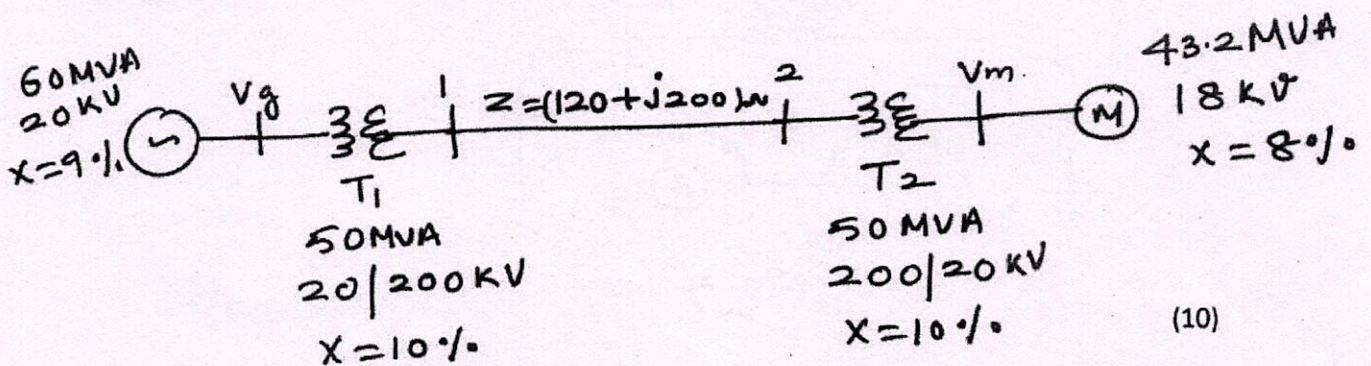 60MVA
20KV
X=9%
Vg
1
Z=(120+j200)Ω
2
Vm
43.2MVA
18KV
X=8%
M
T1
50MVA
20/200KV
X=10%
T2
50MVA
200/20KV
X=10%
(10)